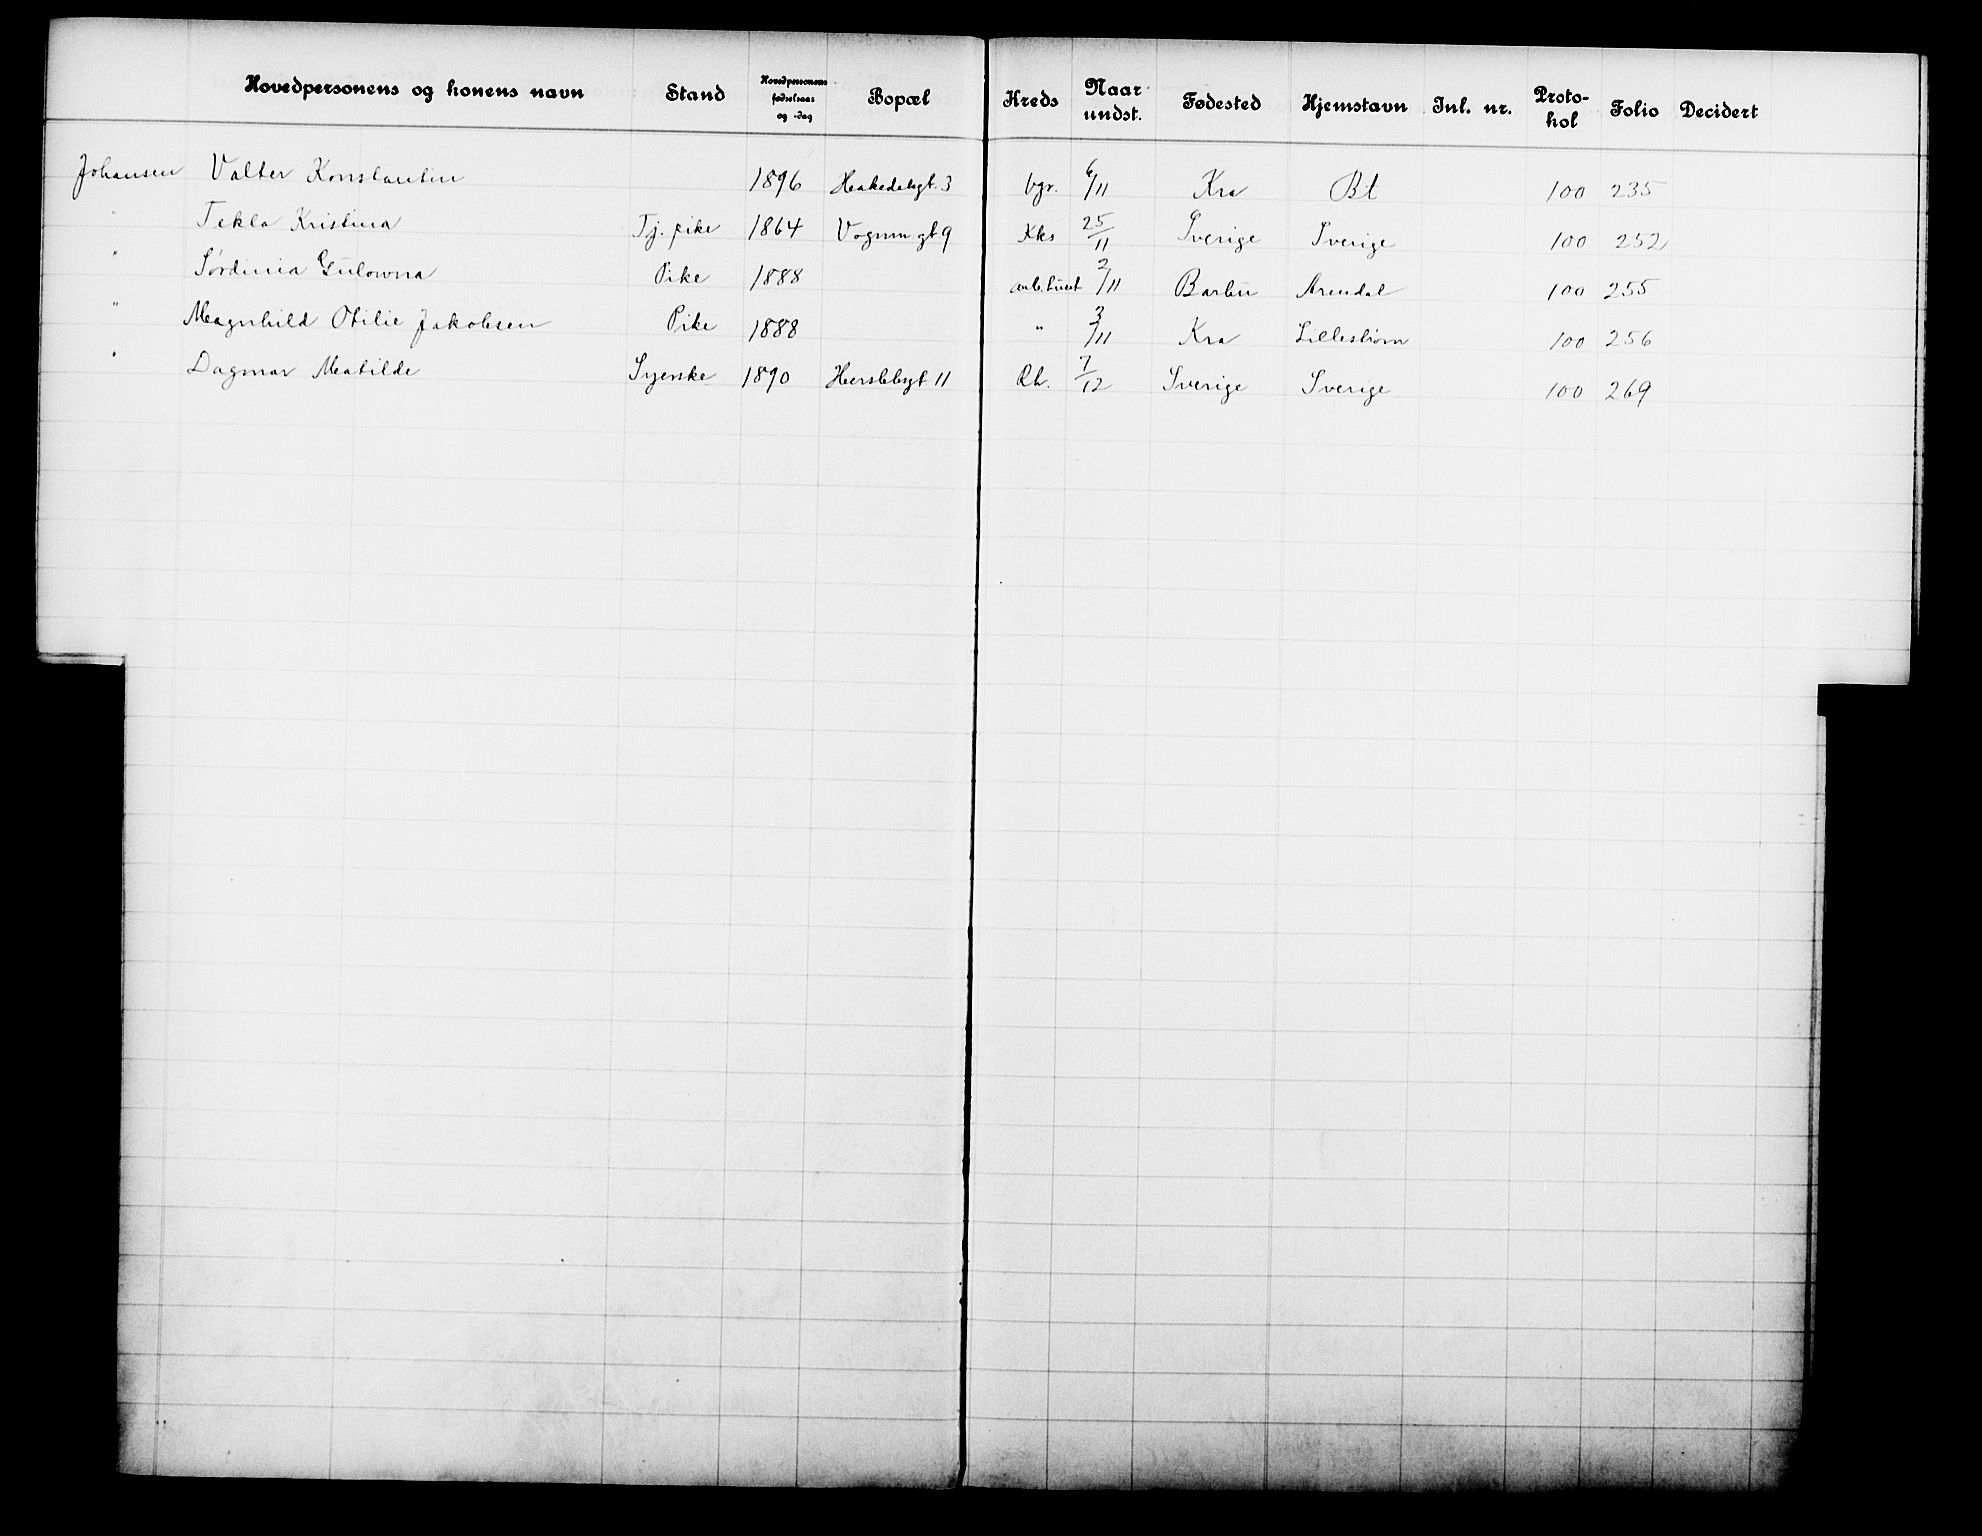 Hovedpersonens og konens navn Stand Hovedpersonens fødselsaar og -dag Bopæl Kreds Naar undst. Fødested Hjemstavn Inl. nr. Protokol Folio Decidert
Johansen Valter Konstantin 1896 Hakedalsgt. 3 Vgr. 6/11 Kra Bt 100 235
" Tekla Kristina Tj. pike 1864 Vognm.gt 9 Kks 25/11 Sverige Sverige 100 252
" Gulowna Pike 1888 2/11 Barbu Arendal 100 255
" Magnhild Otilie Jakobsen Pike 1888 " 3/11 Kra Lillestrøm 100 256
" Dagmar Matilde Syerske 1890 Herslebsgt 11 Rh. 7/12 Sverige Sverige 100 269